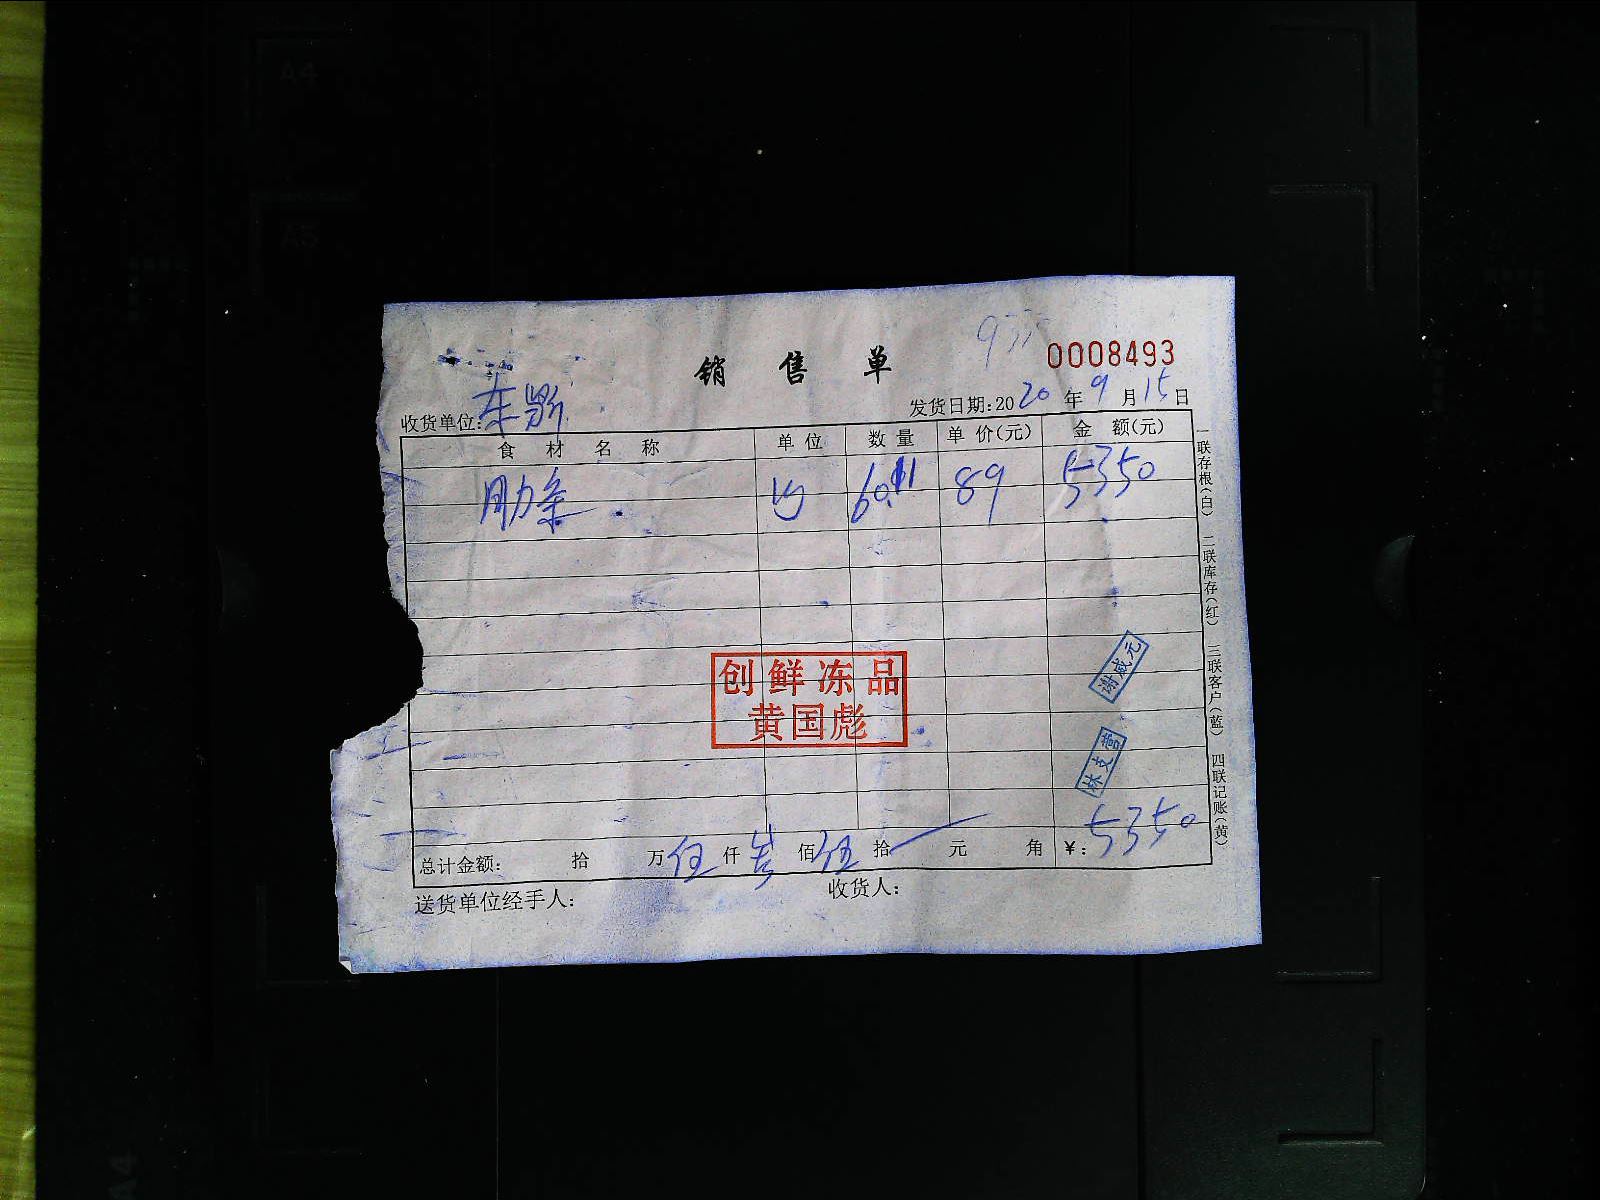 A4
A5
销售单
0008493
收货单位:
发货日期:2020年9月15日
食材名称 单位 数量 单价(元) 金额(元)
肋条 60.11 89 5350
创鲜冻品
黄国彪
谢威元
林支营
总计金额: 拾 万伍仟叁佰伍拾 元 角 ¥:5350
送货单位经手人: 收货人:
一联存根(白) 二联库存(红) 三联客户(蓝) 四联记账(黄)
A4